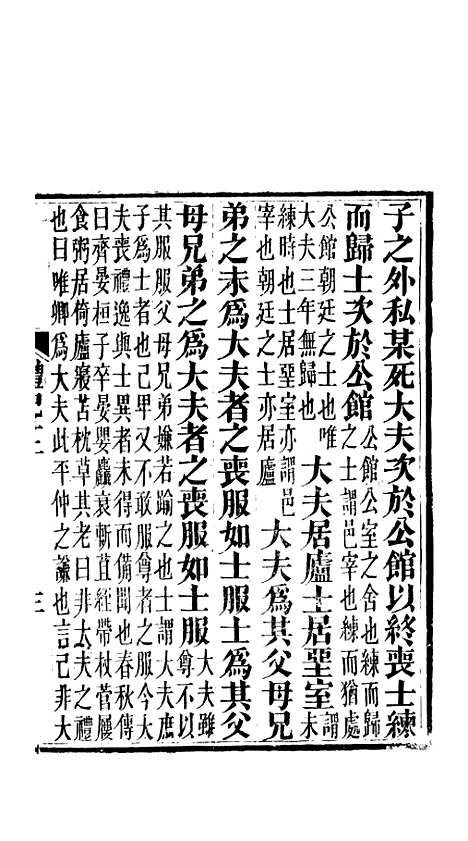 子之外私某死大夫次於公館以終喪士練
而歸士次於公館公館公室之舍也練而歸
之士謂邑宰也練而猶處
公館朝廷之士也唯
大夫三年無歸也大夫居廬士居堊室謂
未
練時也士居堊室亦謂邑
宰也朝廷之士亦居廬大夫爲其父母兄
弟之未爲大夫者之喪服如士服士爲其父
母兄弟之爲大夫者之喪服如士服大夫雖
尊不以
其服服父母兄弟嫌若踰之也士謂大夫庶
子爲士者也己卑又不敢服尊者之服今大
夫喪禮逸與士異者未得而備聞也春秋傳
曰齊晏桓子卒晏嬰麤衰斬苴絰帶杖菅屨
食粥居倚廬寢苫枕草其老曰非大夫之禮
也曰唯卿爲大夫此平仲之謙也言己非大
禮記十二
三